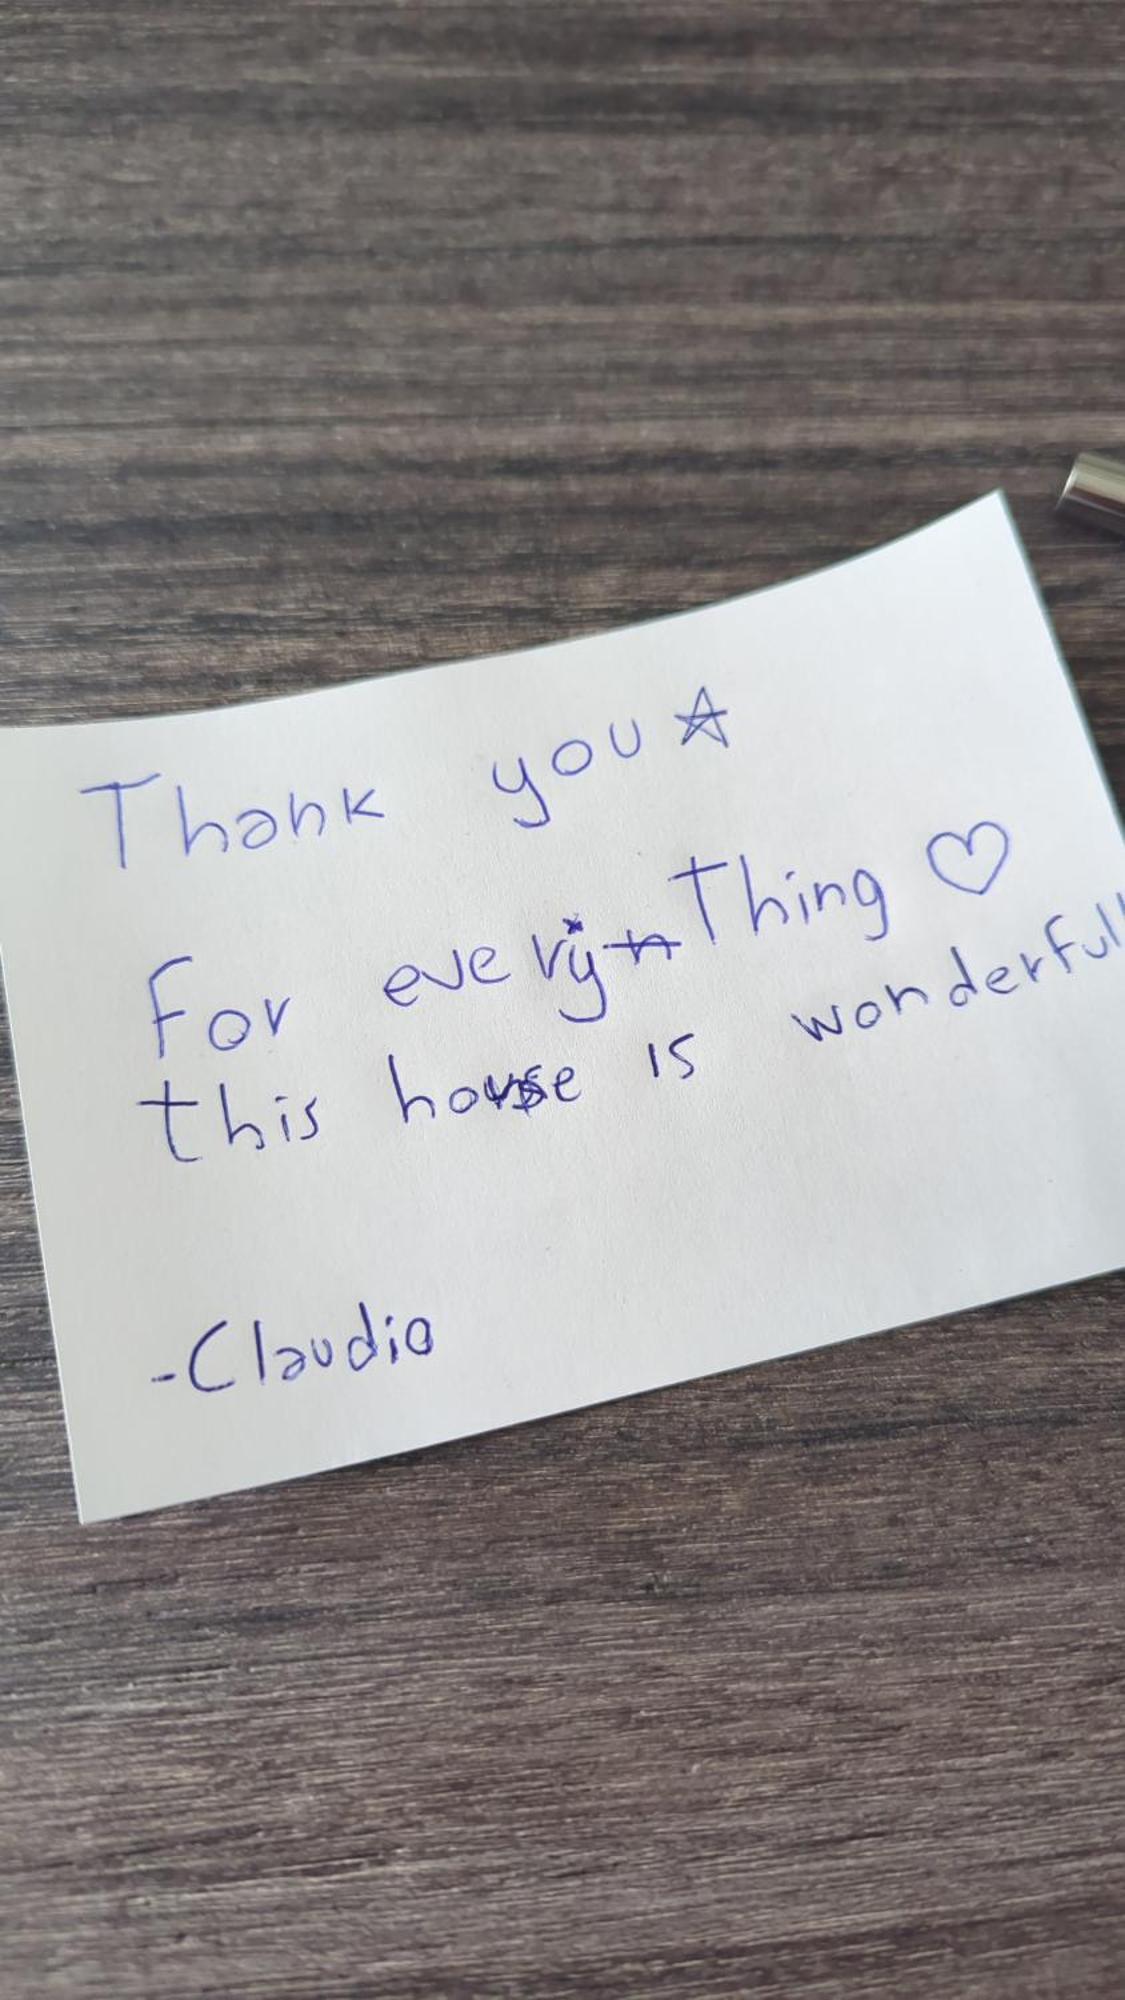 Thank you ☆
For everything ♡
this house is wonderfull
-Claudia